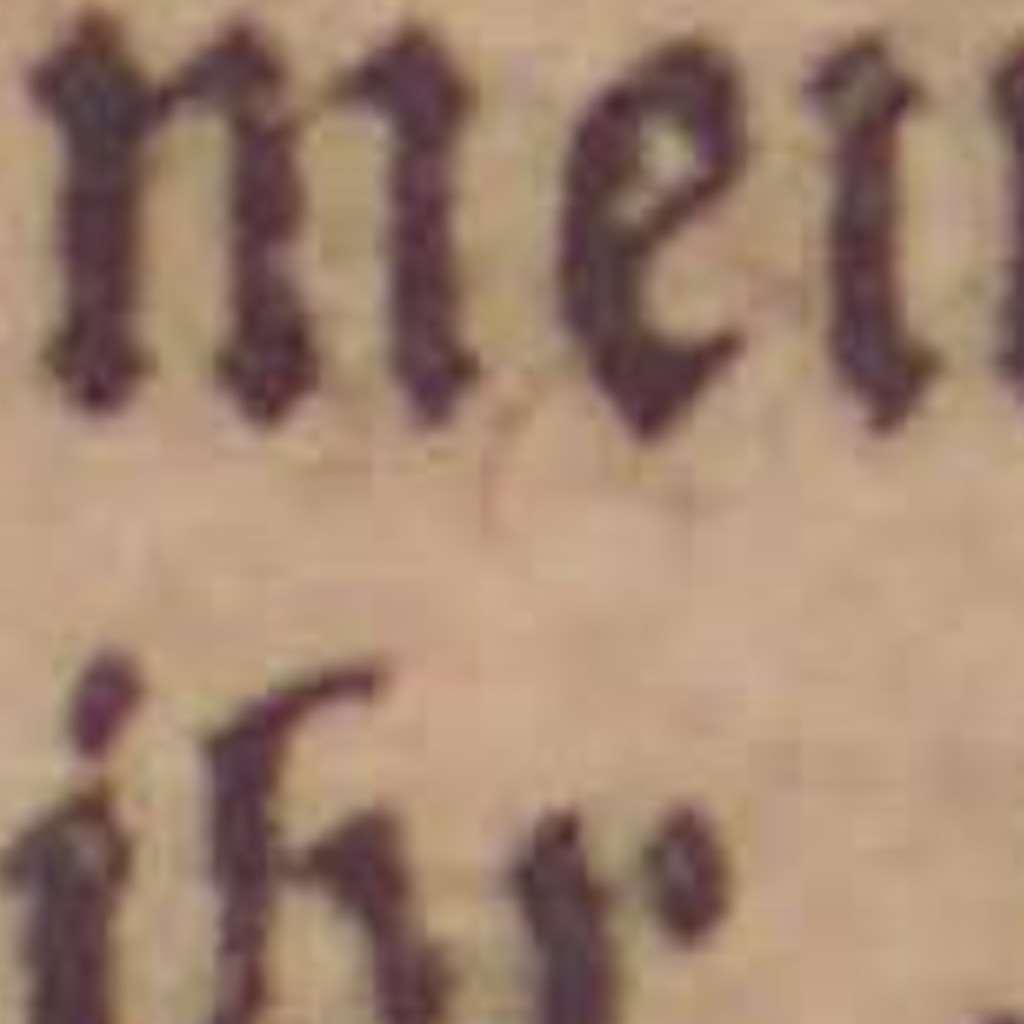 mei
ihr